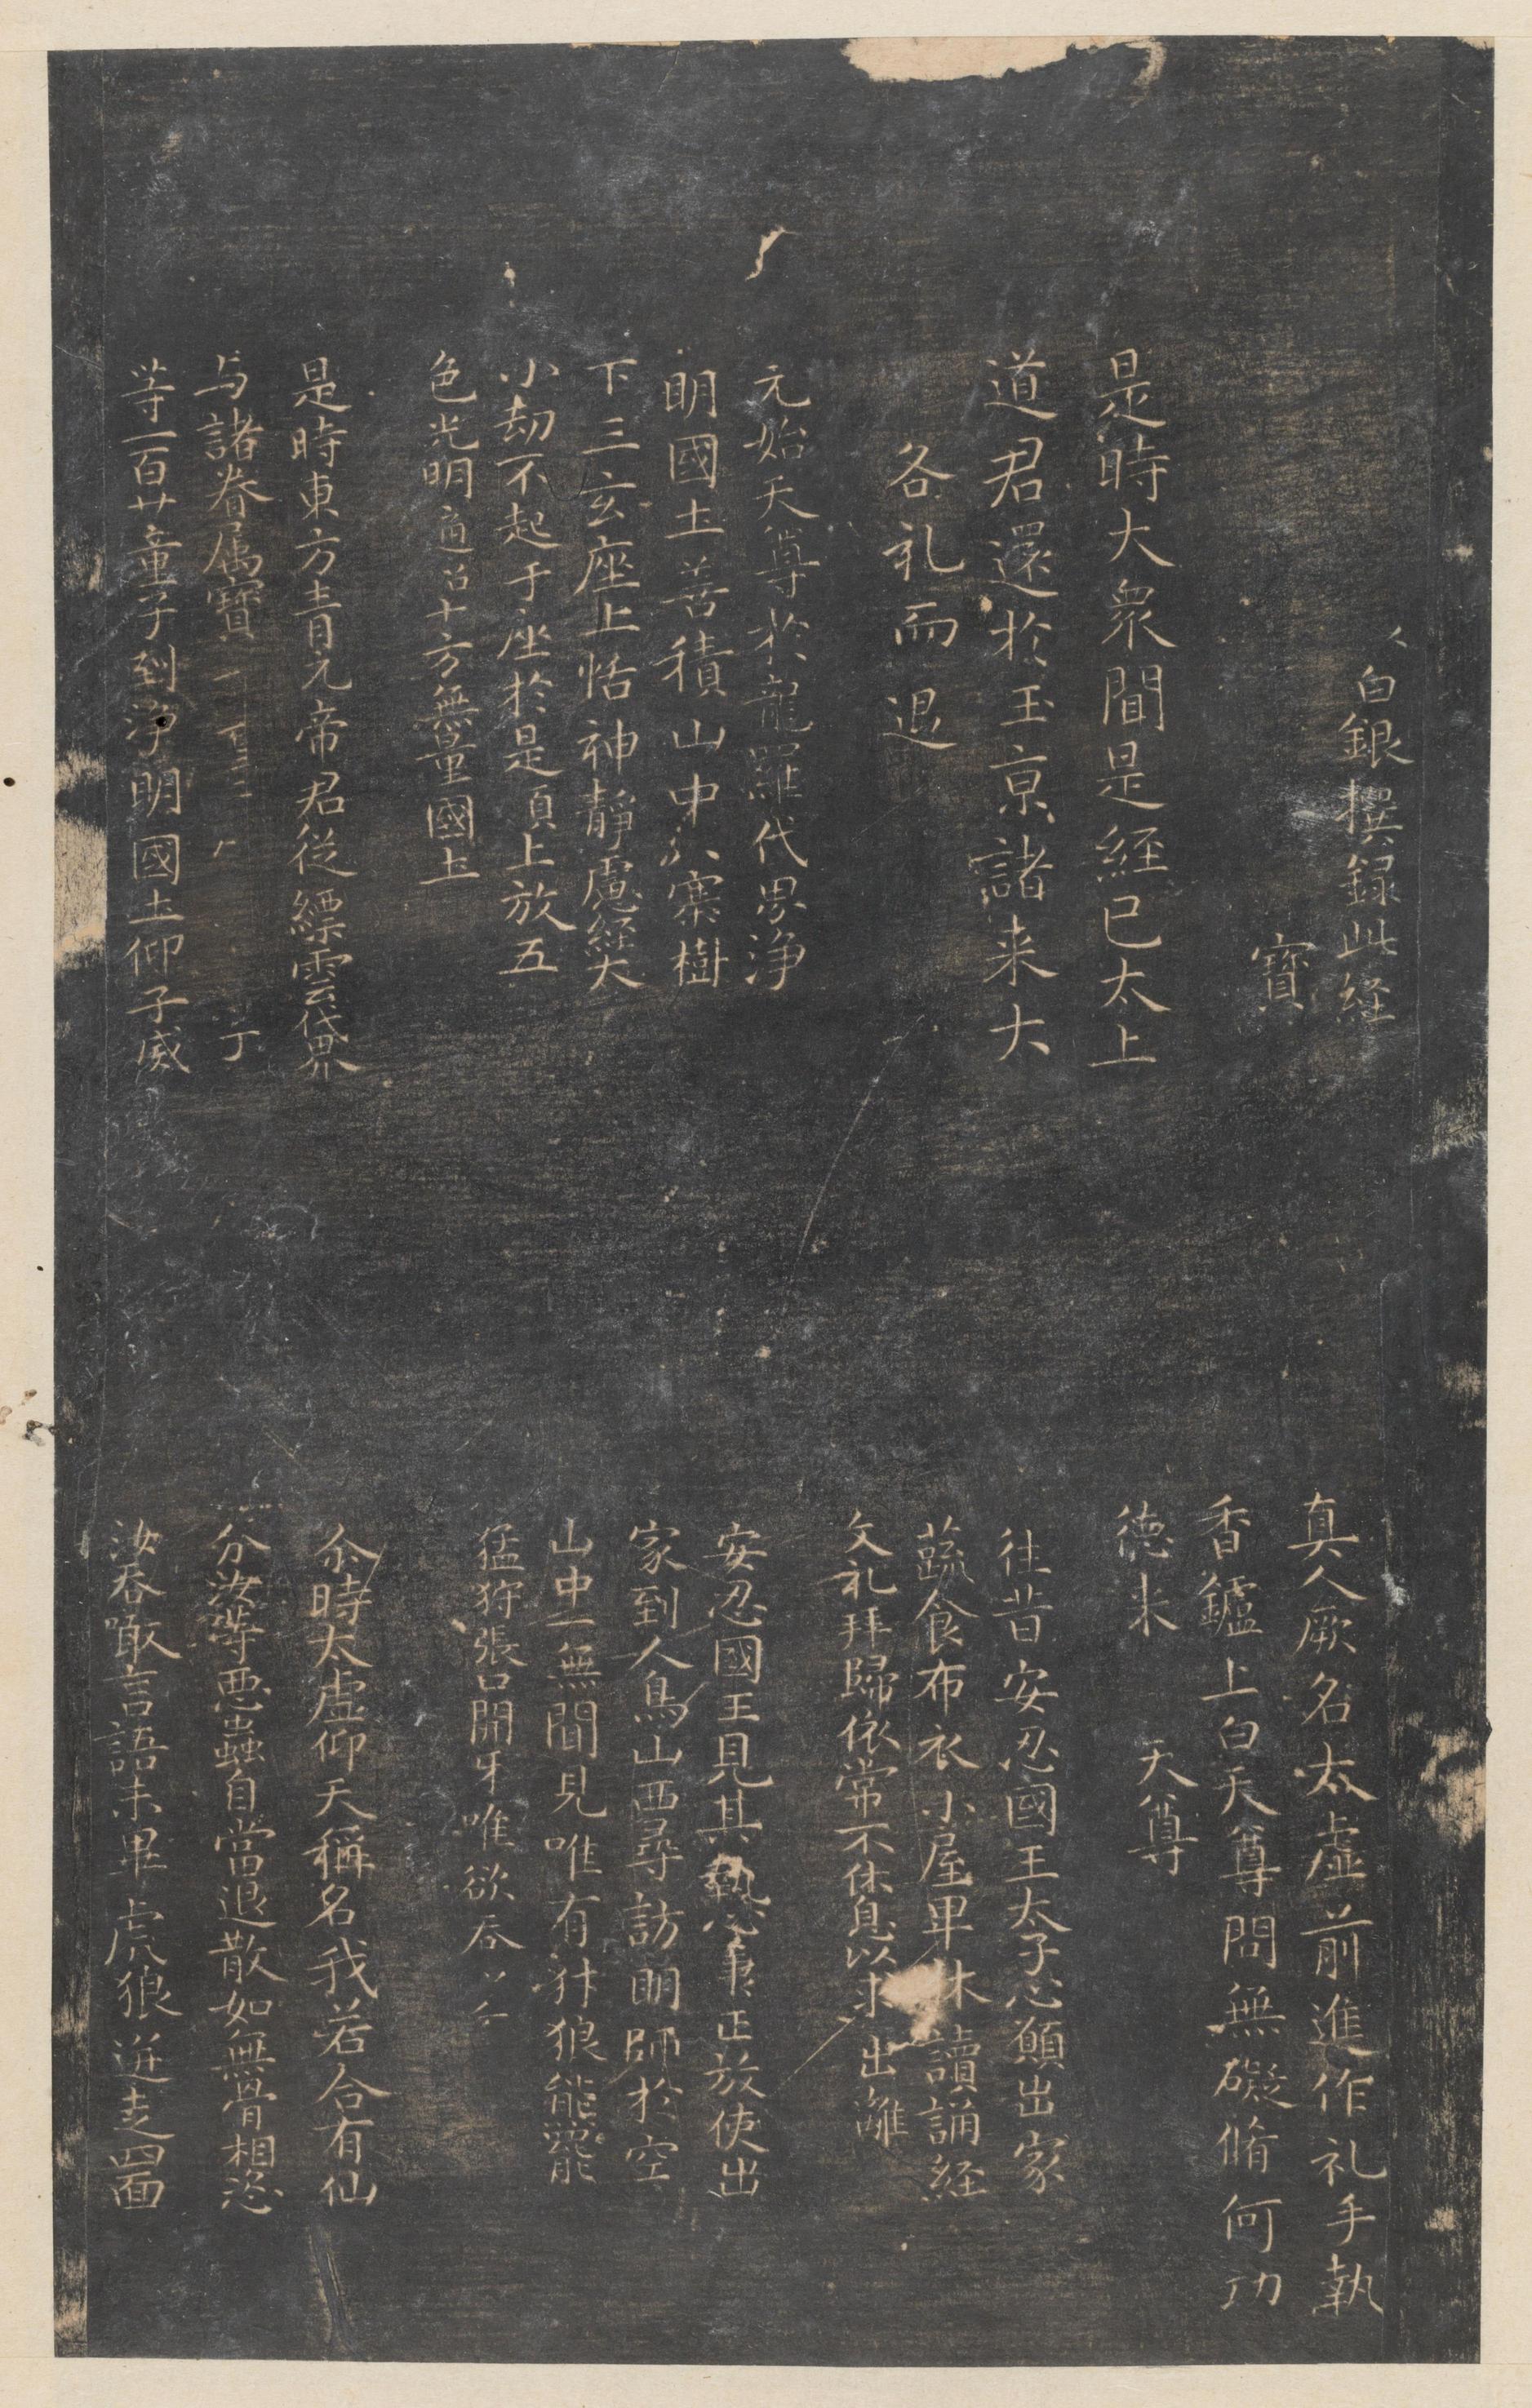 白銀撰録此経
寳
是時大衆聞是経已太上
道君還於玉京諸来大
各礼而退
元始天尊於龍羅代界浄
明國土善積山中八騫樹
下三玄座上恬神靜慮経大
小劫不起于座於是頂上放五
色光明遍召十方無量國土
是時東方青元帝君従縹雲代界
与諸眷属寳
等一百廿童子到浄明國土仰子威
真人厥名太虚前進作礼手執
香鑪上白天尊問無礙脩何功
徳来 天尊
往昔安忍國王太子心願出家
蔬食布衣小屋單牀讀誦経
文礼拜歸依常不休息以求出離
安忍國王見其執心事正放使出
家到人鳥山西尋訪明師於空
山中一無聞見唯有犲狼能羆
猛狩張口開牙唯欲吞
尒時太虚仰天稱名我若合有仙
分汝等悪蟲自當退散如無骨相恣
汝吞噉言語未畢虎狼迸走四面